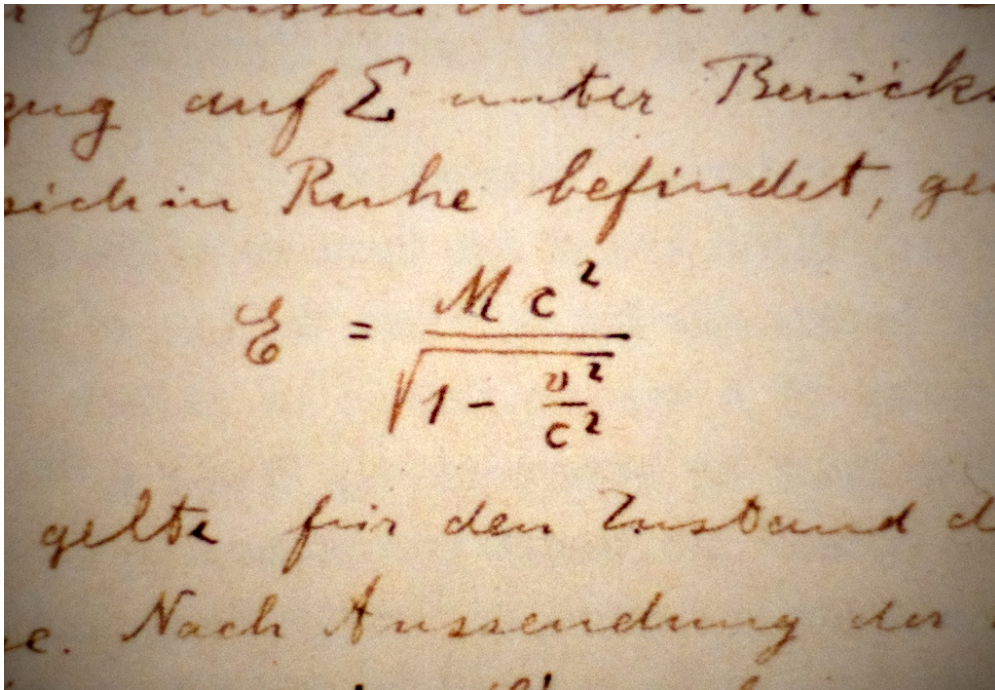 Masse M
auf Σ unter Berücks
sich in Ruhe befindet, ge
E = Mc² / √(1 - v²/c²)
gelte für den Zustand d
Nach Aussendung der